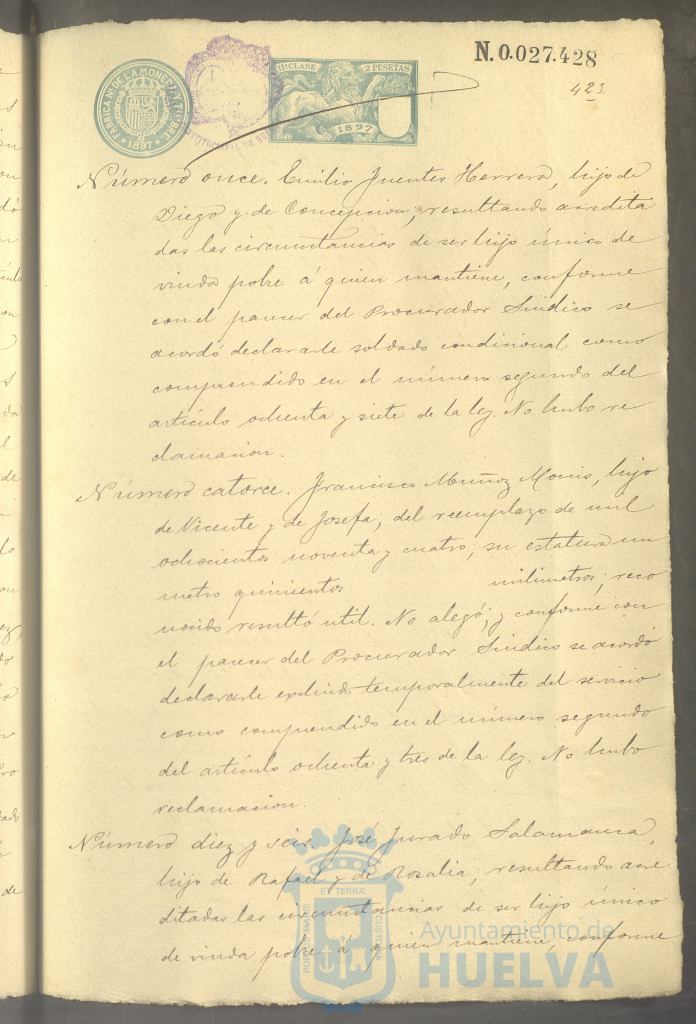 N. 0.027.428
11ª CLASE 2 PESETAS
1897
FABRICA Nª DE LA MONEDA Y TIMBRE
1897
423
Número once. Emilio Fuentes Herrera, hijo de
Diego y de Concepcion, resultando acredita
das las circunstancias de ser hijo único de
viuda pobre á quien mantiene, conforme
con el parecer del Procurador Síndico se
acordó declararle soldado condicional como
comprendido en el número segundo del
artículo ochenta y siete de la ley. No hubo re
clamacion.
Número catorce. Francisco Muñoz Monis, hijo
de Vicente y de Josefa; del reemplazo de mil
ochocientos noventa y cuatro; su estatura un
metro quinientos milimetros; reco
nocido resultó util. No alegó; y conforme con
el parecer del Procurador Síndico se acordó
declararle excluido temporalmente del servicio
como comprendido en el número segundo
del artículo ochenta y tres de la ley. No hubo
reclamacion.
Número diez y seis. José Jurado Salamanca,
hijo de Rafael y de Rosalia; resultando acre
ditadas las circunstancias de ser hijo único
de viuda pobre á quien mantiene, conforme
Ayuntamiento de
HUELVA